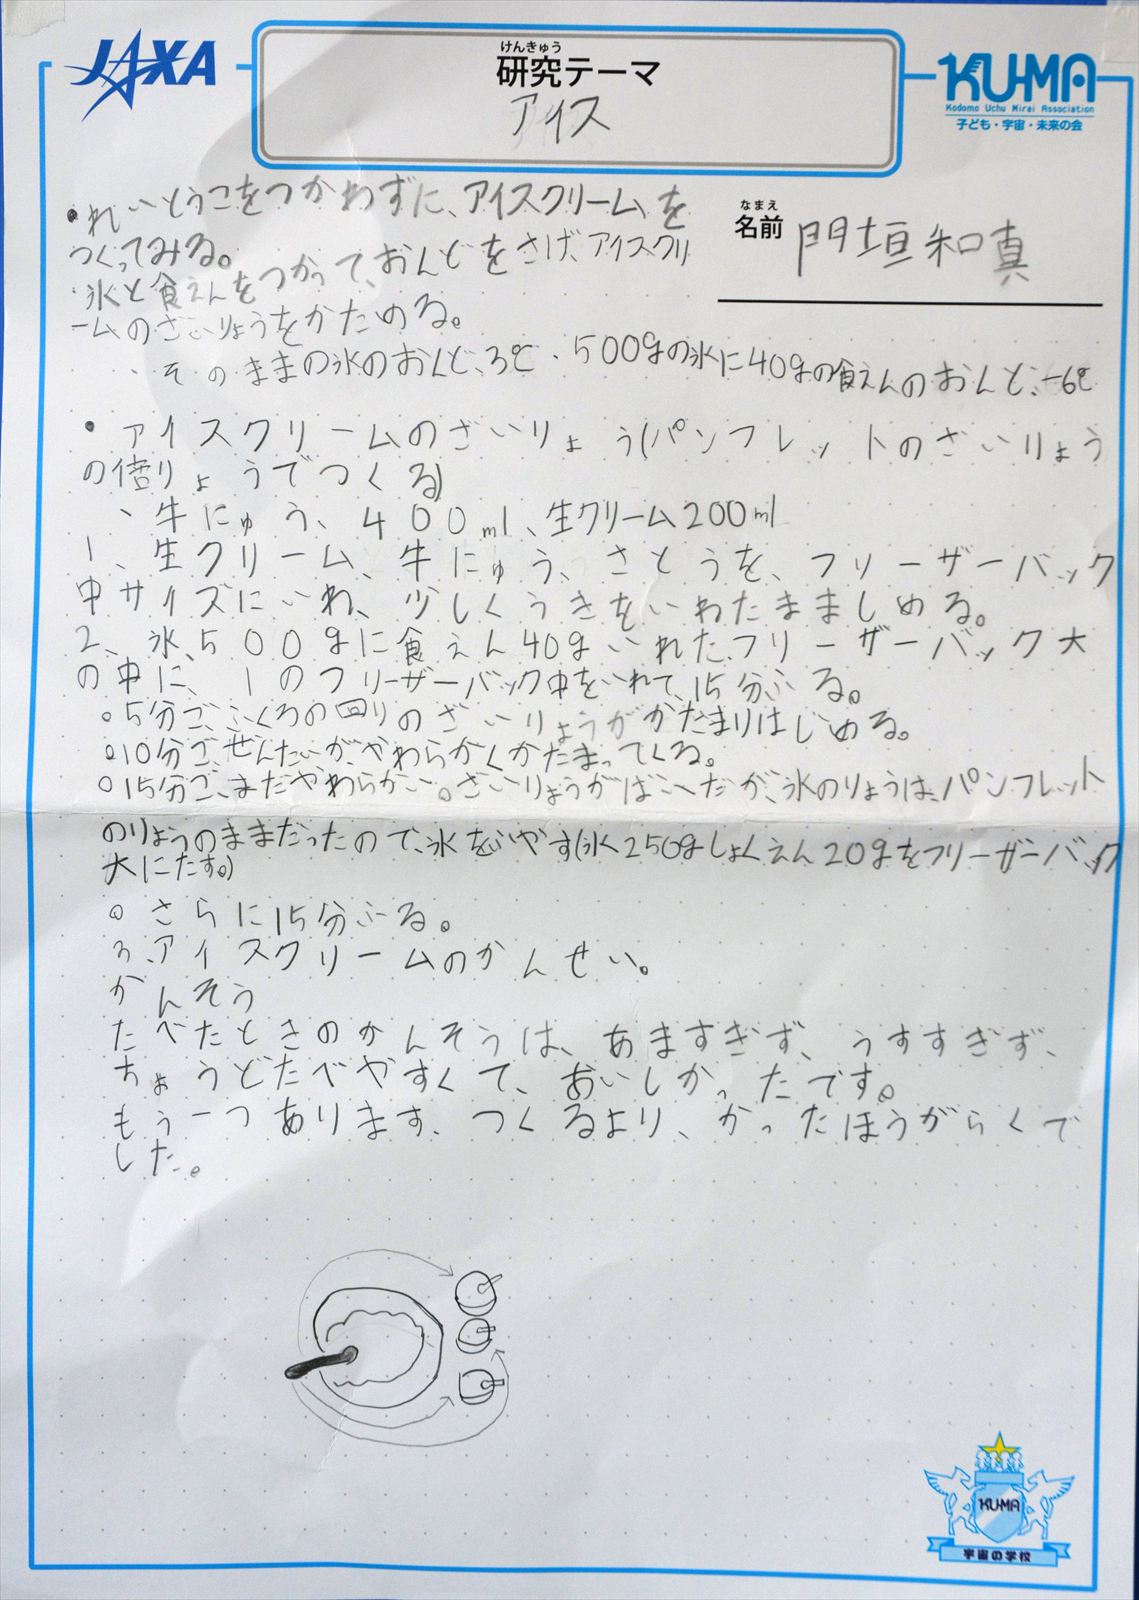 JAXA
けんきゅう
研究テーマ
アイス
KU-MA
Kodomo Uchu Mirai Association
子ども・宇宙・未来の会
なまえ
名前 門垣和真
・れいとうこをつかわずに、アイスクリームを
つくってみる。
・氷と食えんをつかって、おんどをさげ、アイスクリ
ームのざいりょうをかためる。
・そのままの氷のおんど、3℃・500gの氷に40gの食えんのおんど、-6℃
・アイスクリームのざいりょう(パンフレットのざいりょう
の倍りょうでつくる)
、牛にゅう、400ml、生クリーム200ml
1、生クリーム、牛にゅう、さとうを、フリーザーバック
中サイズにいれ、少しくうきをいれたまましめる。
2、氷、500gに食えん40gいれた、フリーザーバック大
の中に、1のフリーザーバック中をいれて、15分ふる。
○5分ご、ふくろの回りのざいりょうがかたまりはじめる。
○10分ご、ぜんたいがやわらかくかたまってくる。
○15分ご、まだやわらかい。ざいりょうがばいだが、氷のりょうは、パンフレット
のりょうのままだったので、氷をふやす(氷250gしょくえん20gをフリーザーバック
大にたす。)
○さらに15分ふる。
3、アイスクリームのかんせい。
かんそう
たべたときのかんそうは、あますぎず、うすすぎず、
ちょうどたべやすくて、おいしかったです。
もう一つあります、つくるより、かったほうがらくで
した。
KU-MA
宇宙の学校